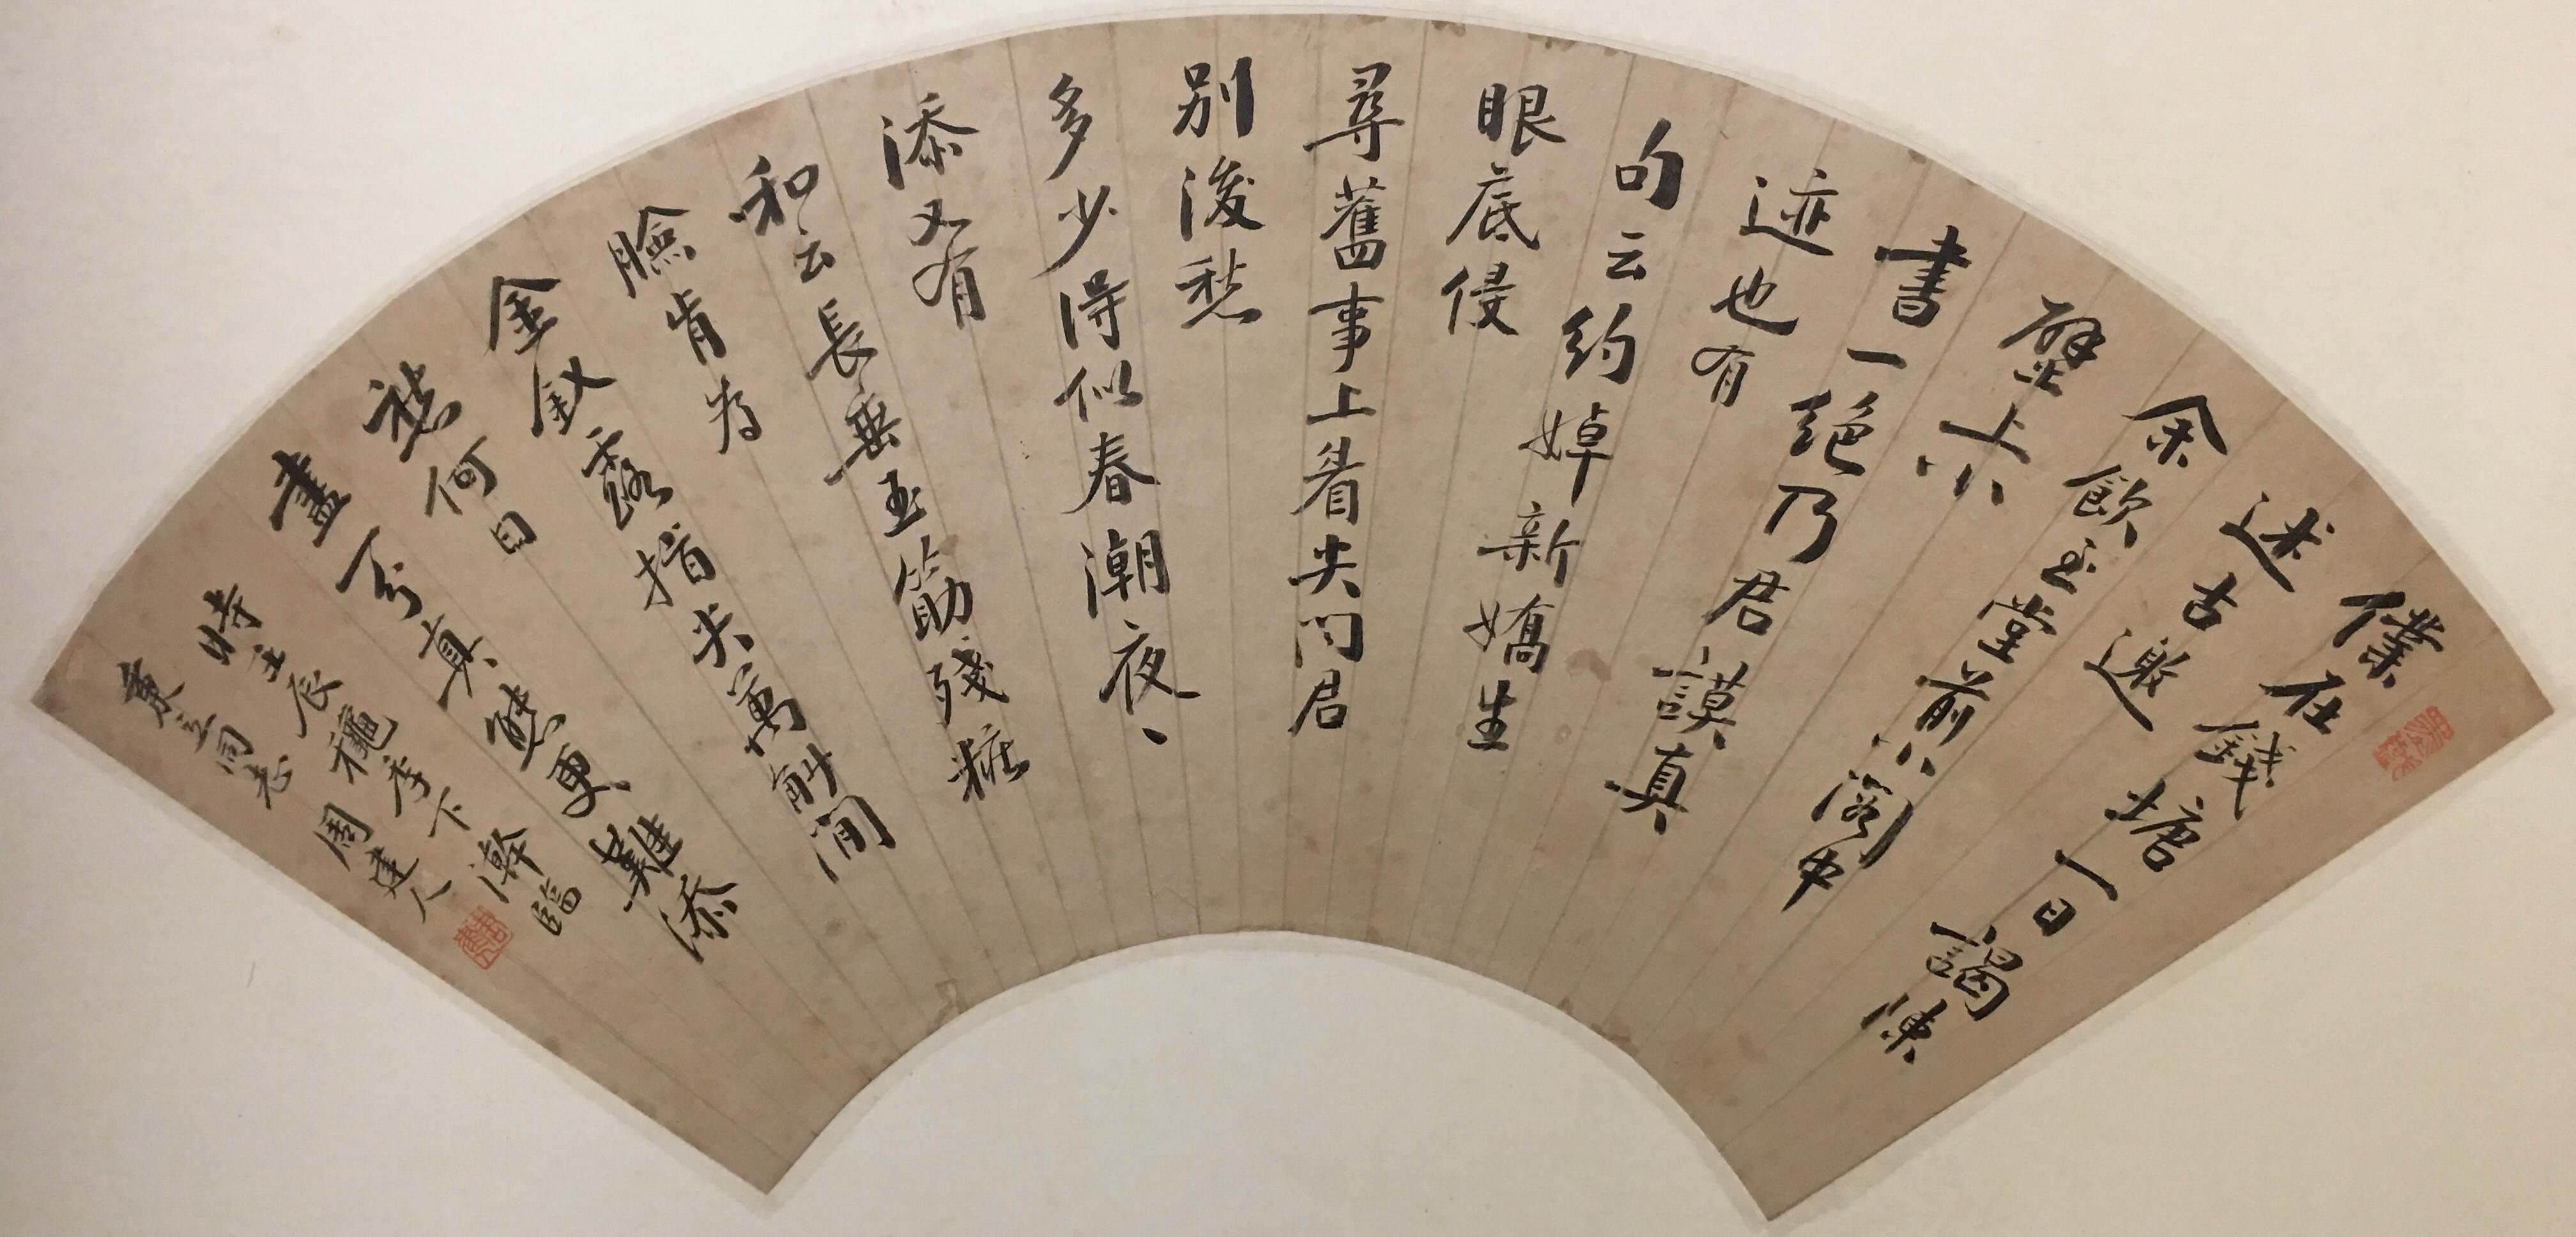 僕在錢塘一日謁陳
述古邀
余飲堂前小閣中
壁上小
書一絕乃君謨真
迹也有
句云約婥新嬌生
眼底侵
尋舊事上眉尖問君
別後愁
多少得似春潮夜丶
添又有
和云長垂玉筯殘粧
臉肯為
金釵露指尖萬斛閒
愁何日
盡一分真態更難添
時壬辰穐季下澣臨
同志 周建人